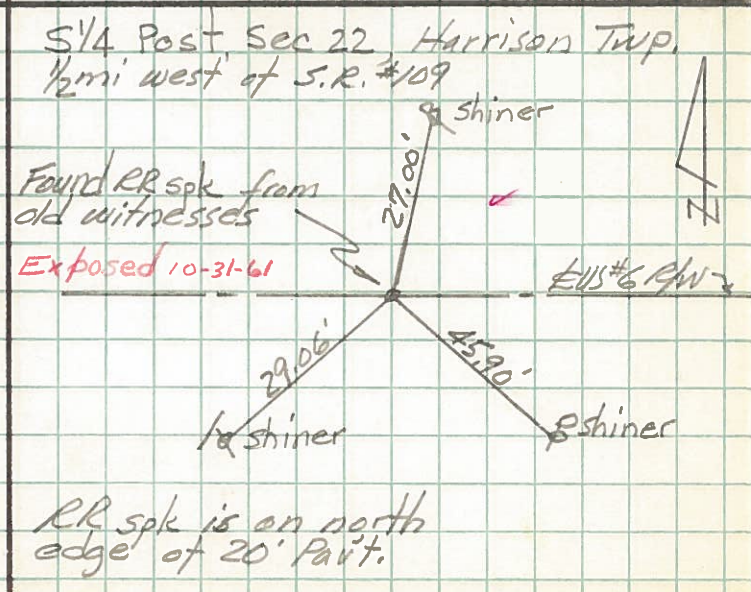 S1/4 Post, Sec 22, Harrison Twp.
1/2 mi west of S.R. #109
shiner
27.00'
Found RR spk from
old witnesses
N
Exposed 10-31-61
℄ US #6 R/W
29.06'
45.90'
shiner
shiner
RR spk is on north
edge of 20' Pav't.